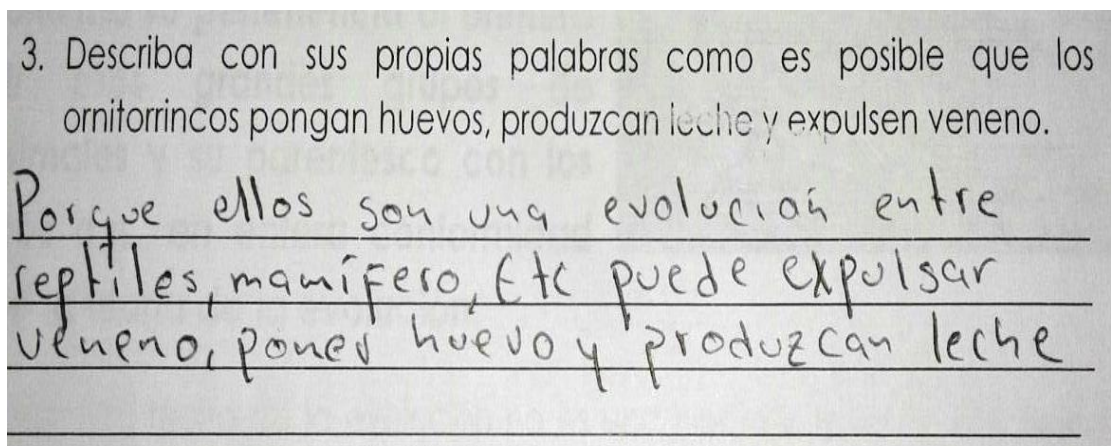 3. Describa con sus propias palabras como es posible que los
ornitorrincos pongan huevos, produzcan leche y expulsen veneno.
Porque ellos son una evolución entre
reptiles, mamífero, Etc puede expulsar
veneno, poner huevo y produzcan leche